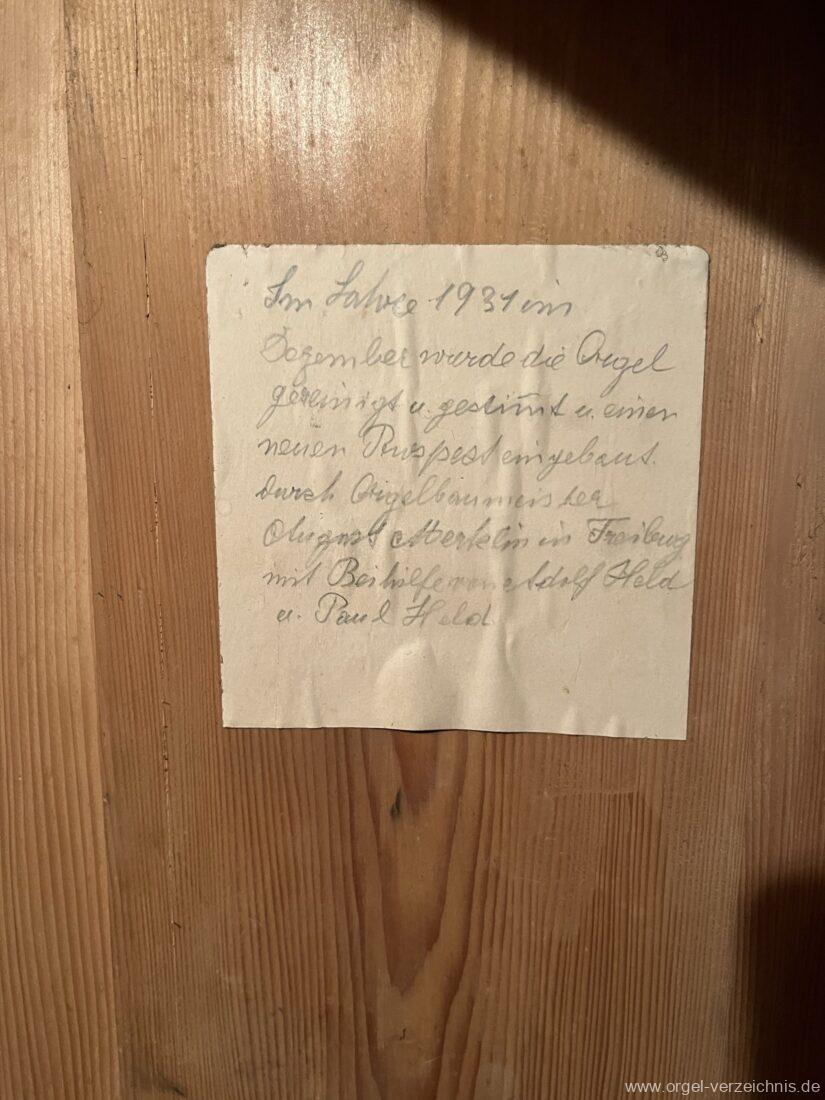 Im Jahre 1931 im
Dezember wurde die Orgel
gereinigt u. gestim̄t u. einen
neuen eingebaut.
durch Orgelbaumeister
August Merklin in Freiburg
mit Beihilfe von Adolf Held
u. Paul Held
www.orgel-verzeichnis.de